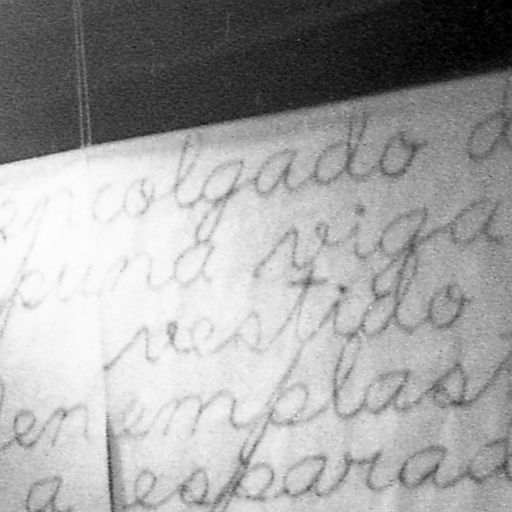 colgado d
una viga
vestido
en emplas
a esparad